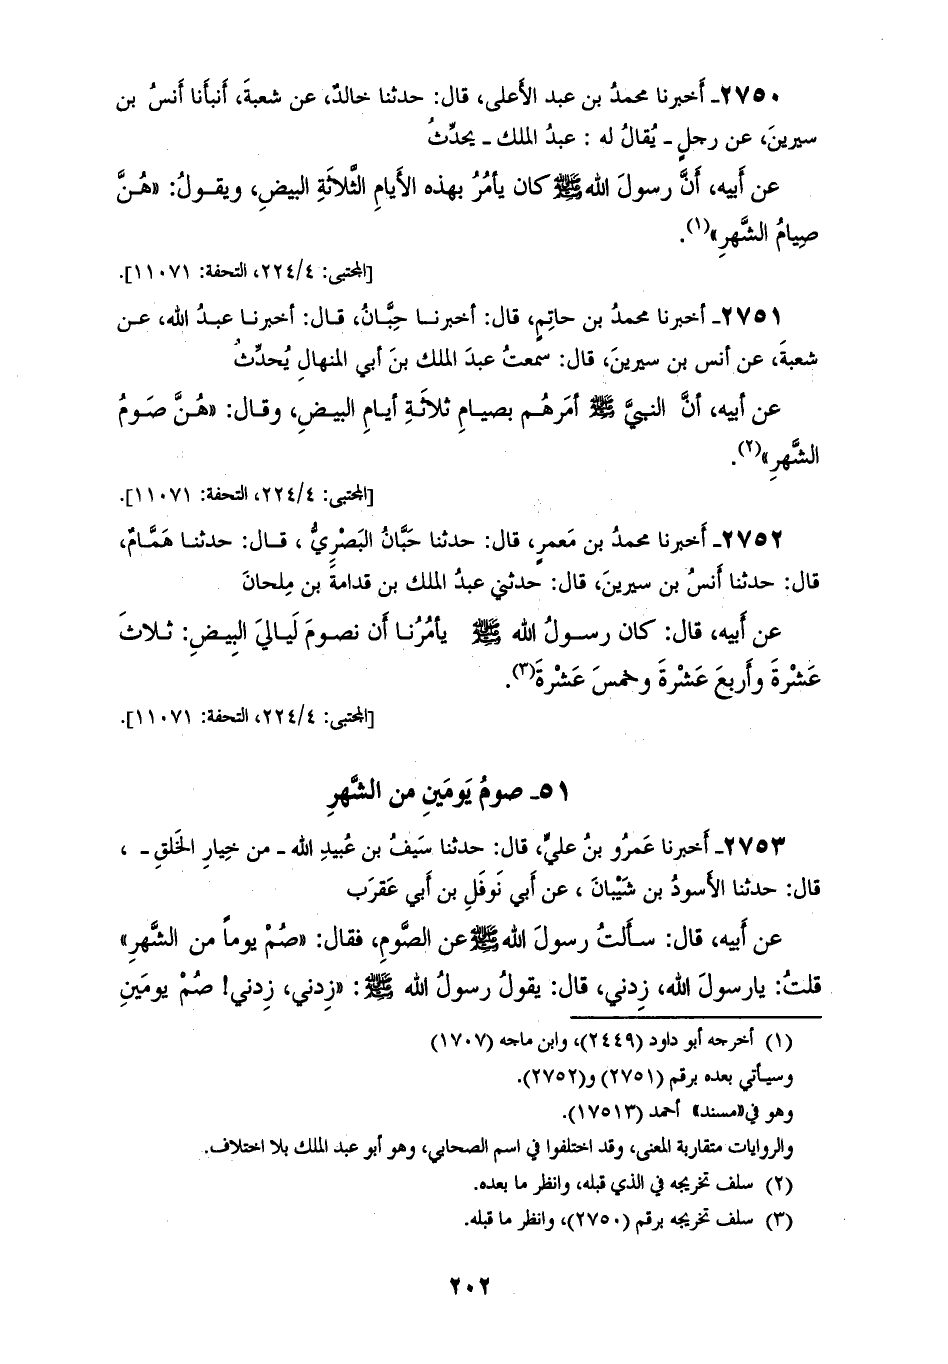 ٢٧٥٠ـ أَخبرنا محمدُ بن عبد الأَعلى، قال: حدثنا خالدٌ، عن شعبةَ، أَنبأَنا أَنسُ بن
سيرينَ، عن رجلٍ ـ يُقالُ له : عبدُ الملك ـ يحدِّثُ
عن أَبيه، أَنَّ رسولَ الله ﷺ كان يأمُرُ بهذه الأَيامِ الثَّلاثَةِ البيضِ، ويقـولُ: «هُنَّ
صِيامُ الشَّهرِ»(١).
[المجتبى: ٢٢٤/٤، التحفة: ١١٠٧١].
٢٧٥١ـ أخبرنا محمدُ بن حاتِمٍ، قال: أخبرنـا حِبَّانُ، قـال: أخبرنـا عبـدُ الله، عـن
شعبةَ، عن أنس بن سيرينَ، قال: سمعتُ عبدَ الملك بنَ أبي المنهالِ يُحدِّثُ
عن أبيه، أنَّ النبيَّ ﷺ أمَرهُـم بصيـامِ ثلاثَـةِ أيـامِ البيـضِ، وقـال: «هُـنَّ صَـومُ
الشَّهرِ»(٢).
[المجتبى: ٢٢٤/٤، التحفة: ١١٠٧١].
٢٧٥٢ـ أَخبرنا محمدُ بن مَعمرٍ، قال: حدثنا حَبَّانُ البَصْرِيُّ ، قـال: حدثنـا هَمَّـامٌ،
قال: حدثنا أَنسُ بن سيرينَ، قال: حدثني عبدُ الملك بن قدامةَ بن مِلحانَ
عن أَبيه، قال: كان رسـولُ الله ﷺ يأمُرُنـا أَن نصـومَ لَيـاليَ البِيـضِ: ثـلاثَ
عَشْرةَ وأَربعَ عَشْرةَ وخمسَ عَشْرةَ(٣).
[المجتبى: ٢٢٤/٤، التحفة: ١١٠٧١].
٥١ـ صومُ يَومَينِ من الشَّهرِ
٢٧٥٣ـ أَخبرنا عَمرُو بنُ عليٍّ، قال: حدثنا سَيفُ بن عُبيدِ الله ـ من خِيارِ الخَلقِ ـ ،
قال: حدثنا الأَسودُ بن شَيْبانَ ، عن أَبي نَوفَلِ بن أَبي عَقرَب
عن أَبيه، قال: سـأَلتُ رسولَ الله ﷺ عن الصَّومِ، فقال: «صُمْ يوماً من الشَّهرِ»
قلتُ: يارسولَ الله، زِدني، قال: يقولُ رسولُ الله ﷺ: «زِدني، زِدني! صُمْ يومَينِ
(١) أخرجه أبو داود (٢٤٤٩)، وابن ماجه (١٧٠٧)
وسيأتي بعده برقم (٢٧٥١) و(٢٧٥٢).
وهو في«مسند» أحمد (١٧٥١٣).
والروايات متقاربة المعنى، وقد اختلفوا في اسم الصحابي، وهو أبو عبد الملك بلا اختلاف.
(٢) سلف تخريجه في الذي قبله، وانظر ما بعده.
(٣) سلف تخريجه برقم (٢٧٥٠)، وانظر ما قبله.
٢٠٢